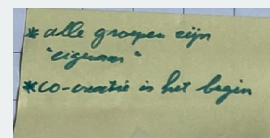 * alle groepen zijn
"eigenaar"
* co-creatie is het begin